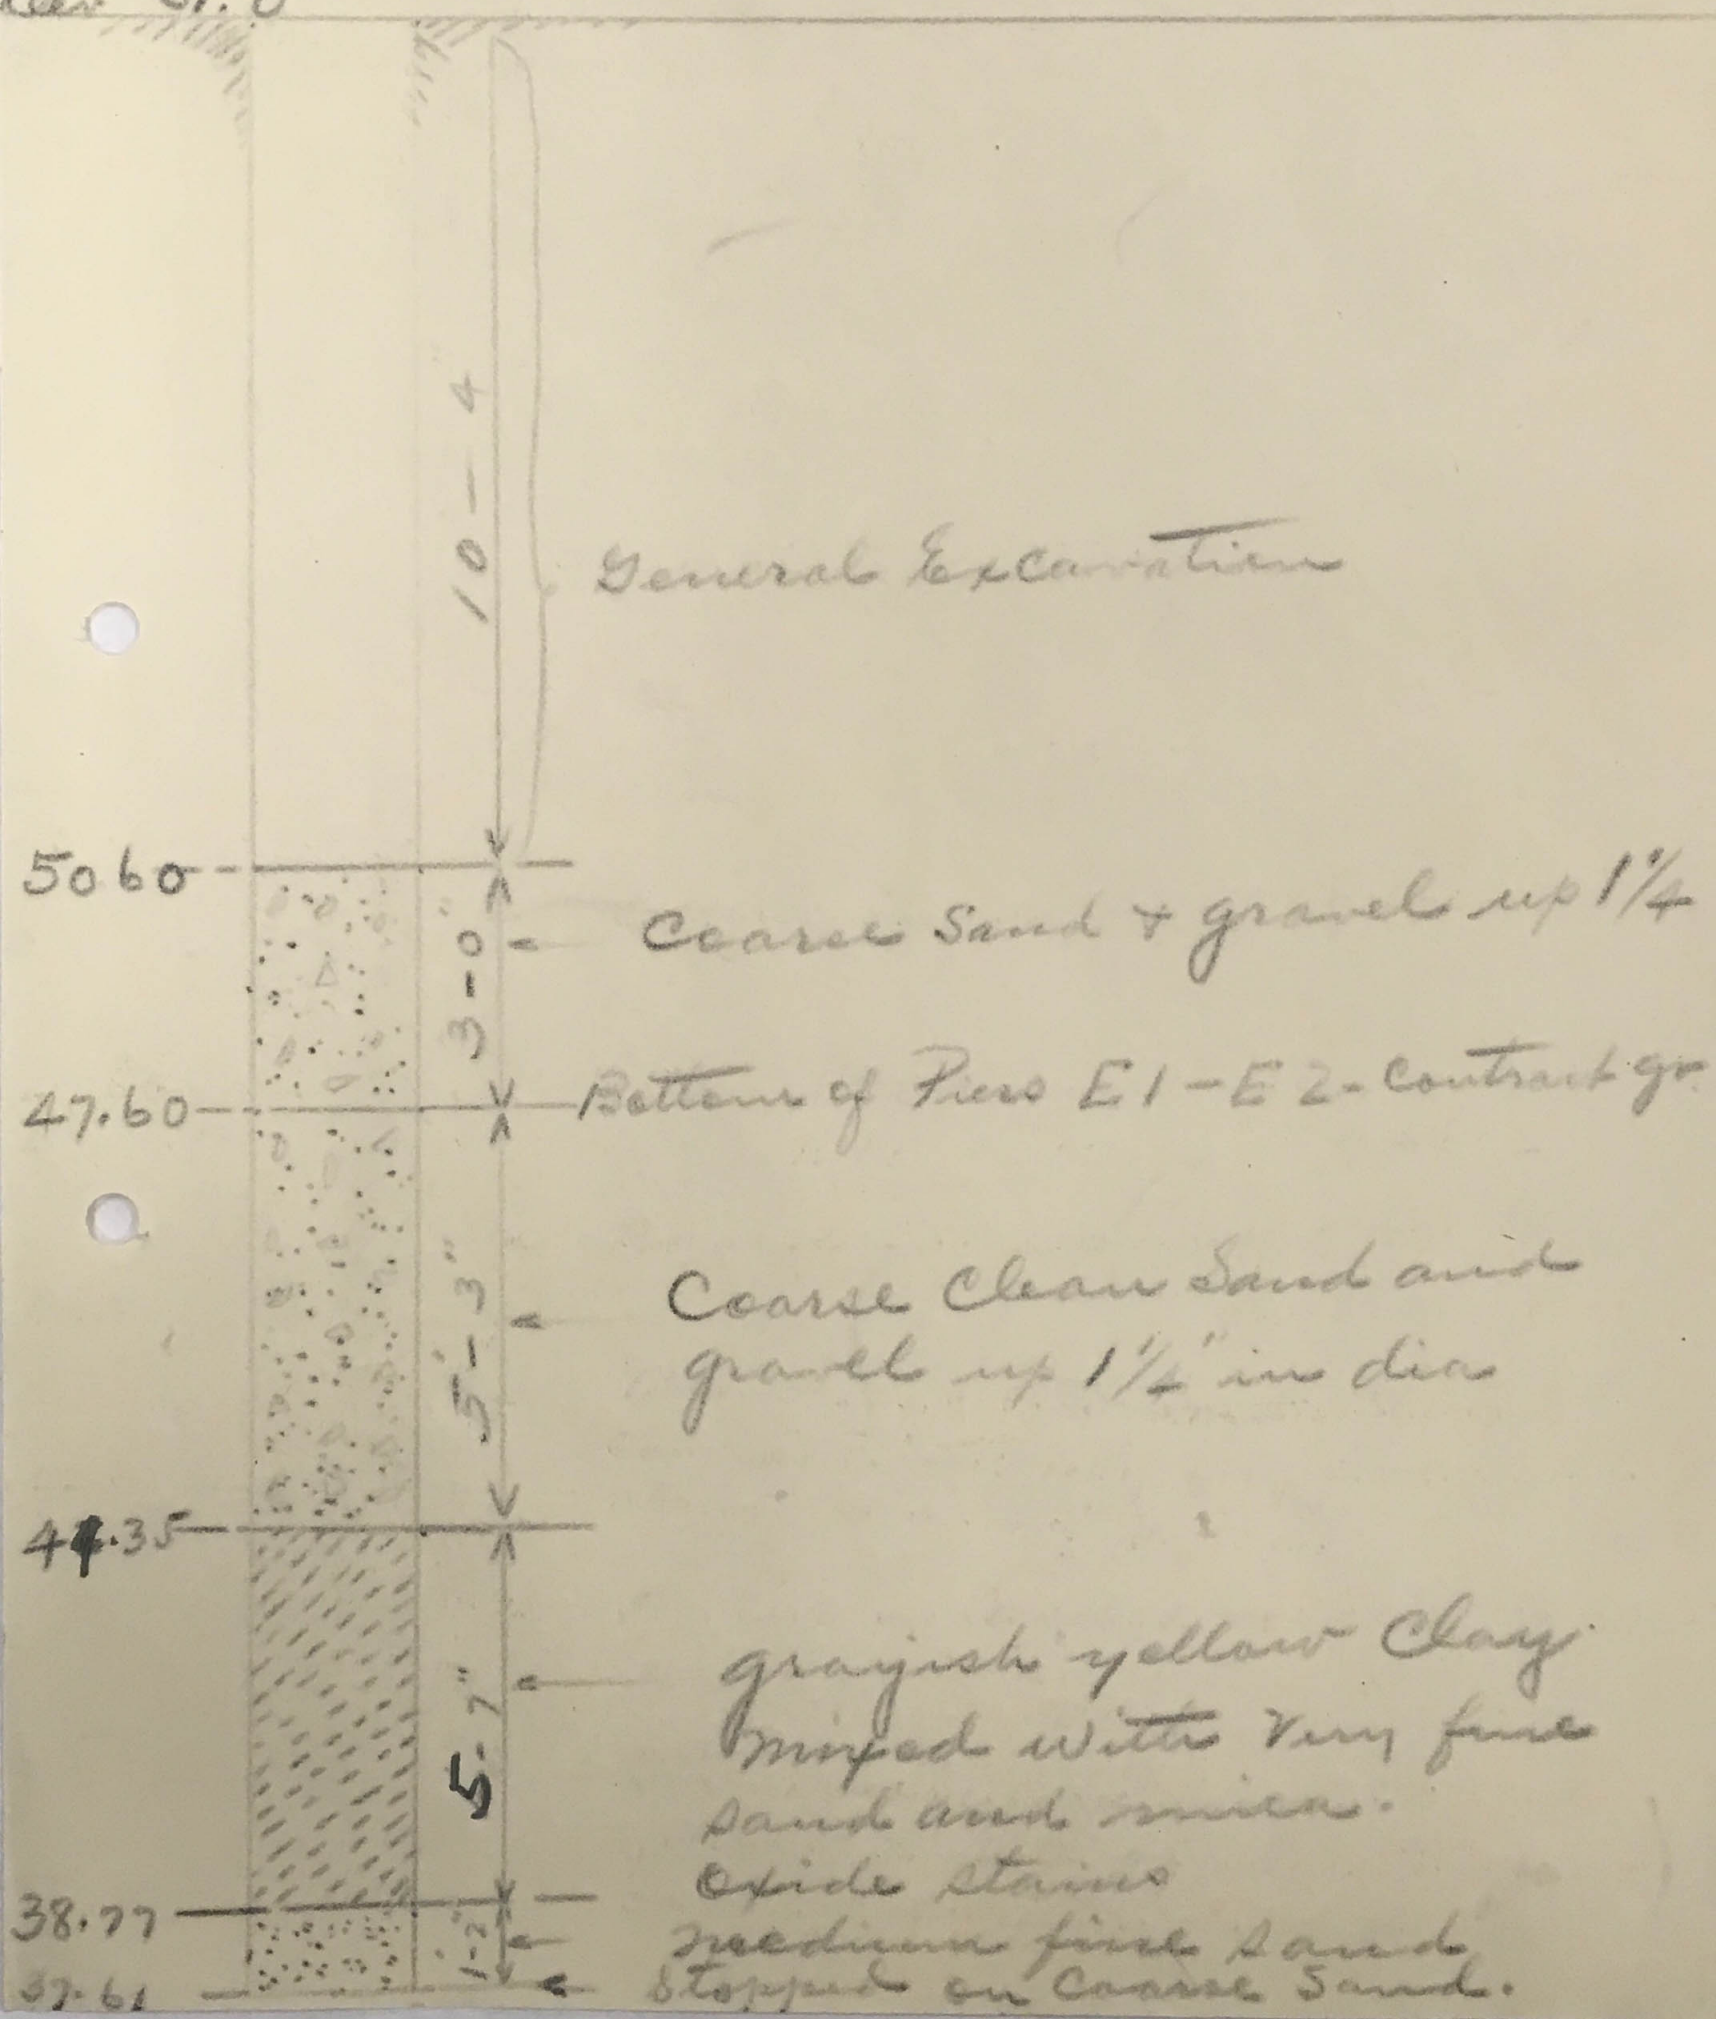 10 - 4
General Excavation
50 60
3 - 0"
Coarse Sand & gravel up 1 1/4"
47.60
Bottom of Piers E1 - E2 - Contract gr.
5' - 3"
Coarse Clean Sand and
gravel up 1 1/4" in dia
.35
5 - 7"
grayish yellow Clay
mixed with Very fine
sand and mica.
Oxide stains
38.77
1 - 2"
medium fine sand
37.61
Stopped on Coarse Sand.